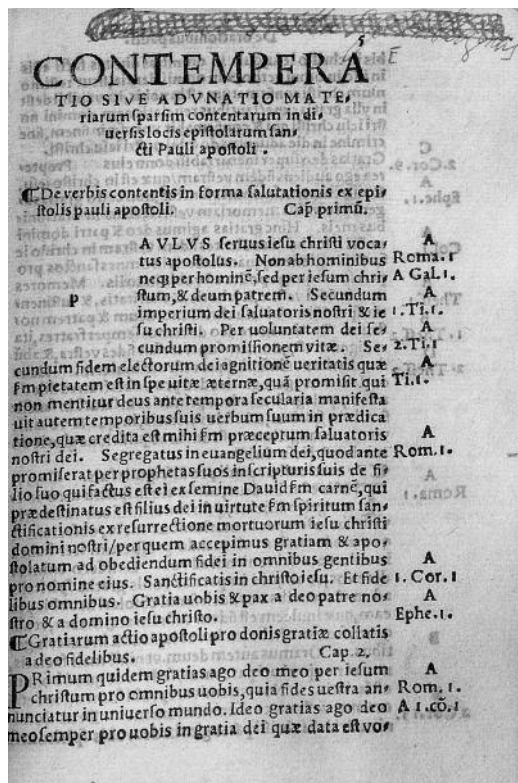 5
E
CONTEMPERA
TIO SIVE ADVNATIO MATE,
riarum ſparſim contentarum in di,
uerſis locis epiſtolarum ſan,
cti Pauli apoſtoli.
¶De verbis contentis in forma ſalutationis ex epi,
ſtolis pauli apoſtoli. Cap̄. primū.
P
AVLVS ſeruus ieſu chriſti voca, A
tus apoſtolus. Non ab hominibus Roma.1
neqꝫ per hominē, ſed per ieſum chri, A Gal.1.
ſtum, & deum patrem. Secundum A
imperium dei ſaluatoris noſtri & ie 1.Ti.1.
ſu chriſti. Per uoluntatem dei ſe, A
cundum promiſſionem vitæ. Se, 2.Ti.1
cundum fidem electorum dei agnitionē ueritatis quæ A
ẜm pietatem eſt in ſpe uitæ æternæ, quā promiſit qui Ti.1.
non mentitur deus ante tempora ſecularia manifeſta
uit autem temporibus ſuis uerbum ſuum in prædica
tione, quæ credita eſt mihi ẜm præceptum ſaluatoris A
noſtri dei. Segregatus in euangelium dei, quod ante Rom.1.
promiſerat per prophetas ſuos in ſcripturis ſuis de fi,
lio ſuo qui factus eſt ei ex ſemine Dauid ẜm carnē, qui
prædeſtinatus eſt filius dei in uirtute ẜm ſpiritum ſan,
ctificationis ex reſurrectione mortuorum ieſu chriſti
domini noſtri/per quem accepimus gratiam & apo,
ſtolatum ad obediendum fidei in omnibus gentibus A
pro nomine eius. Sanctificatis in chriſto ieſu. Et fide 1.Cor.1
libus omnibus. Gratia uobis & pax a deo patre no, A
ſtro & a domino ieſu chriſto. Ephe.1.
¶Gratiarum actio apoſtoli pro donis gratiæ collatis
a deo fidelibus. Cap.2.
PRimum quidem gratias ago deo meo per ieſum A
chriſtum pro omnibus uobis, quia fides ueſtra an, Rom.1.
nunciatur in uniuerſo mundo. Ideo gratias ago deo A 1.cō.1
meo ſemper pro uobis in gratia dei quæ data eſt vo,